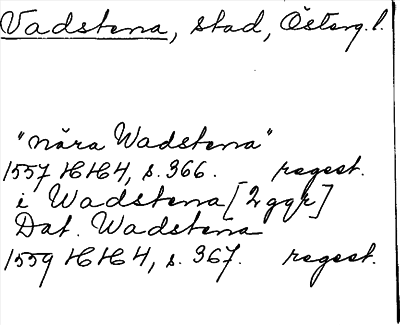 Vadstena, stad, Österg.l.
"nära Wadstena"
1557 HH 4, s. 366. regest.
i Wadstena [2 ggr]
Dat. Wadstena
1559 HH 4, s. 367. regest.